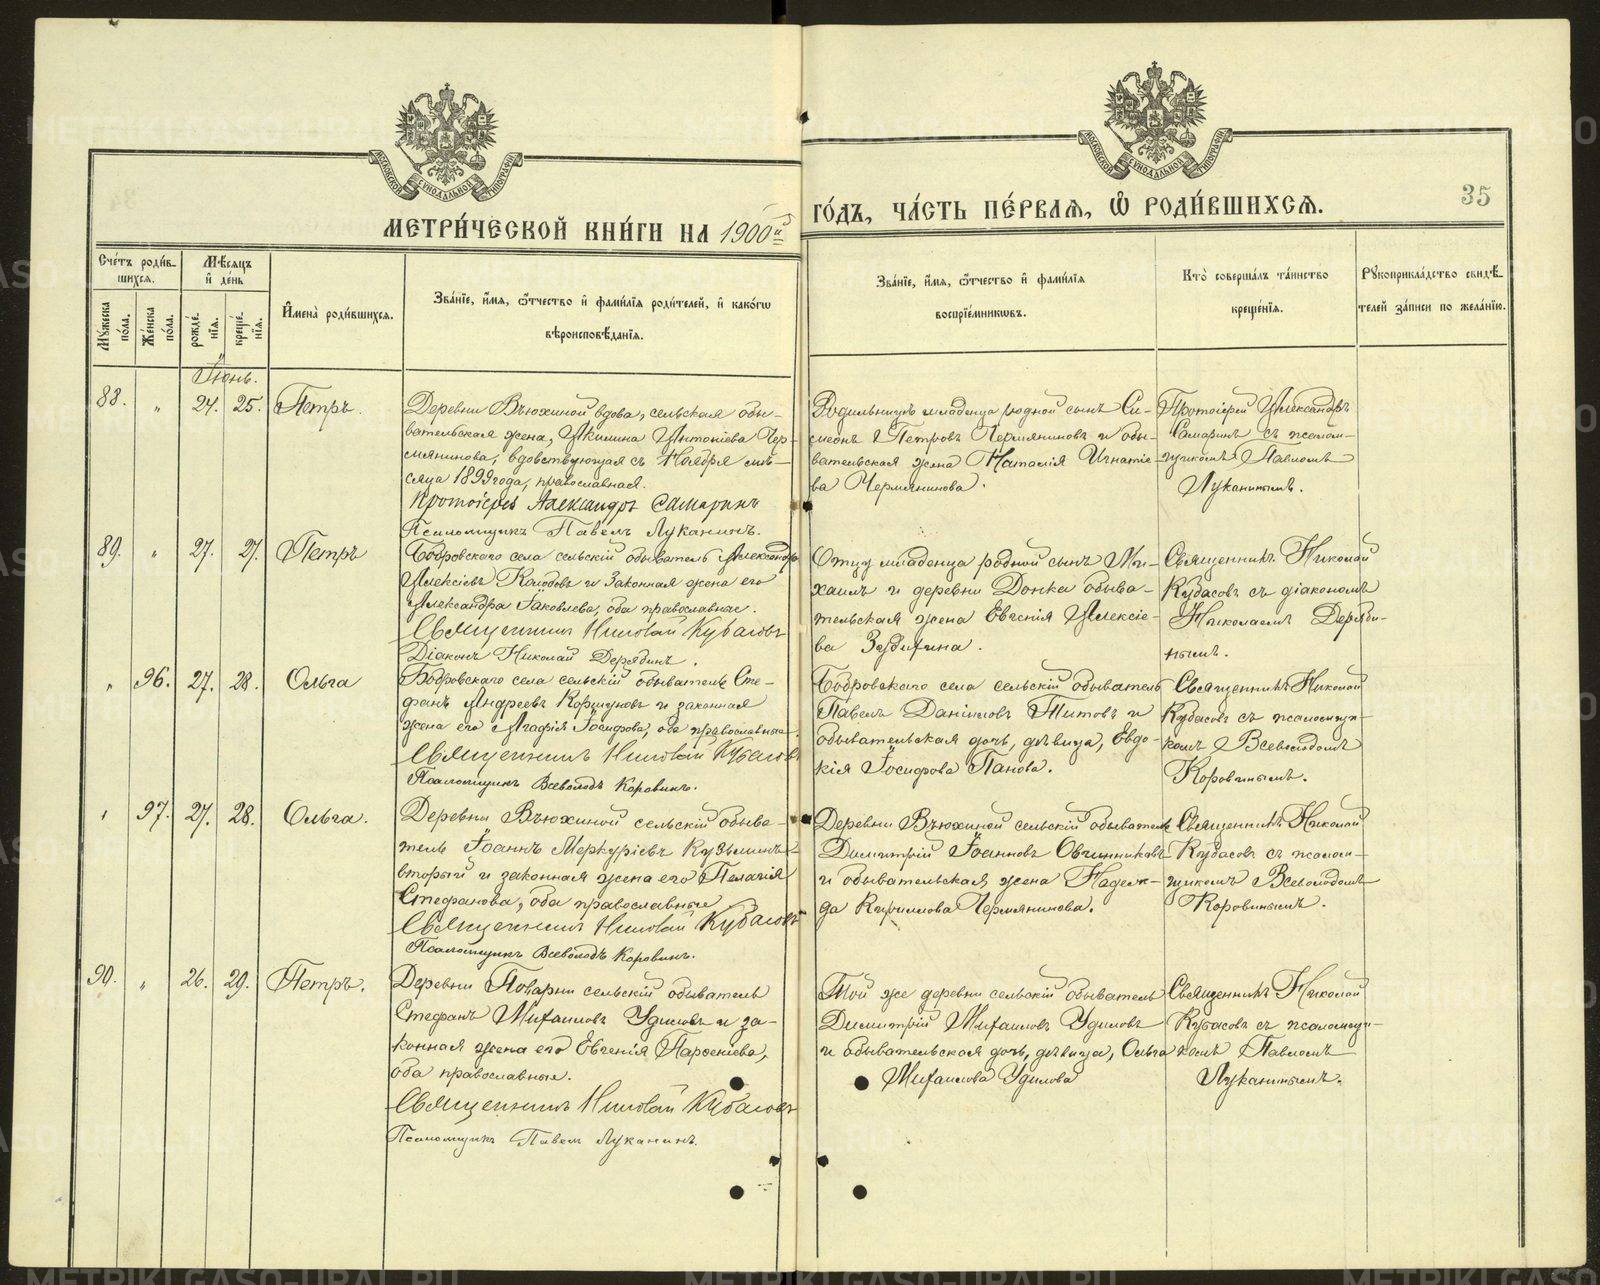 МЕТРИ́ЧЕСКОЙ КНИ́ГИ НА 1900й
ГО́ДЪ, ЧА́СТЬ ПЕ́РВАѦ, Ѽ РОДИ́ВШИХСѦ.
35
МОСКОВСКОЙ СѴНОДАЛЬНОЙ ТИПОГРАФІИ
МОСКОВСКОЙ СѴНОДАЛЬНОЙ ТИПОГРАФІИ
Сче́тъ роди́в-
шихся.
Мѣ́сяцъ
и҆ де́нь
Мꙋ́жеска по́ла.
Же́нска по́ла.
рожде́-
нїѧ.
креще́-
нїѧ.
И҆мена̀ роди́вшихся.
Зва́нїе, и҆́мѧ, ѻ҆́тчество и҆ фами́лїѧ роди́телей, и҆ како́гѡ
вѣроисповѣ́данїѧ.
Зва́нїе, и҆́мѧ, ѻ҆́тчество и҆ фами́лїѧ
воспрїе́мникѡвъ.
Кто̀ соверша́лъ та́инство
креще́нїѧ.
Рꙋкоприкла́дство свидѣ́-
телей за́писи по жела́нїю.
Іюнь.
88. " 24. 25. Петръ.
Деревни Вьюхиной вдова, сельская обы-
вательская жена, Акилина Антоніева Чер-
мянинова, вдовствующая съ Ноября мѣ-
сяца 1899 года, православная.
Протоіерей Александръ Самаринъ
Псаломщикъ Павелъ Луканинъ.
Родильницы младенца родной сынъ Си-
меонъ Петровъ Чермяниновъ и обы-
вательская жена Наталія Игнатіе-
ва Чермянинова.
Протоіерей Александръ
Самаринъ съ псалом-
щикомъ Павломъ
Луканинымъ.
89. " 27. 27. Петръ
Бобровскаго села сельскій обыватель Александръ
Алексіевъ Колодовъ и законная жена его
Александра Іаковлева, оба православные.
Священникъ Николай Кубасовъ
Діаконъ Николай Дерябинъ.
Отцу младенца родной сынъ Ми-
хаилъ и деревни Донки обыва-
тельская жена Евгенія Алексіе-
ва
Священникъ Николай
Кубасовъ съ діакономъ
Николаемъ Деряби-
нымъ.
" 96. 27. 28. Ольга
Бобровскаго села сельскій обыватель Сте-
фанъ Андреевъ Коршуновъ и законная
жена его Агафія Іосифова, оба православные.
Священникъ Николай Кубасовъ
Псаломщикъ Всеволодъ Коровинъ.
Бобровскаго села сельскій обыватель
Павелъ Даніиловъ Титовъ и
обывательская дочь, дѣвица, Евдо-
кія Іосифова Панова.
Священникъ Николай
Кубасовъ съ псаломщи-
комъ Всеволодомъ
Коровинымъ.
" 97. 27. 28. Ольга.
Деревни Вьюхиной сельскій обыва-
тель Іоаннъ Меркуріевъ Кузьминъ
вторый и законная жена его Пелагія
Стефанова, оба православные
Священникъ Николай Кубасовъ
Псаломщикъ Всеволодъ Коровинъ.
Деревни Вьюхиной сельскій обыватель
Димитрій Іоанновъ Овчинниковъ
и обывательская жена Надеж-
да Кириллова Чермянинова.
Священникъ Николай
Кубасовъ съ псалом-
щикомъ Всеволодомъ
Коровинымъ.
90. " 26. 29. Петръ.
Деревни Поварни сельскій обыватель
Стефанъ Михаиловъ Удиловъ и за-
конная жена его Евгенія Парѳеніева,
оба православные.
Священникъ Николай Кубасовъ
Псаломщикъ Павелъ Луканинъ.
Той же деревни сельскій обыватель
Димитрій Михаиловъ Удиловъ
и обывательская дочь, дѣвица, Ольга
Михаилова Удилова
Священникъ Николай
Кубасовъ съ псаломщи-
комъ Павломъ
Луканинымъ.